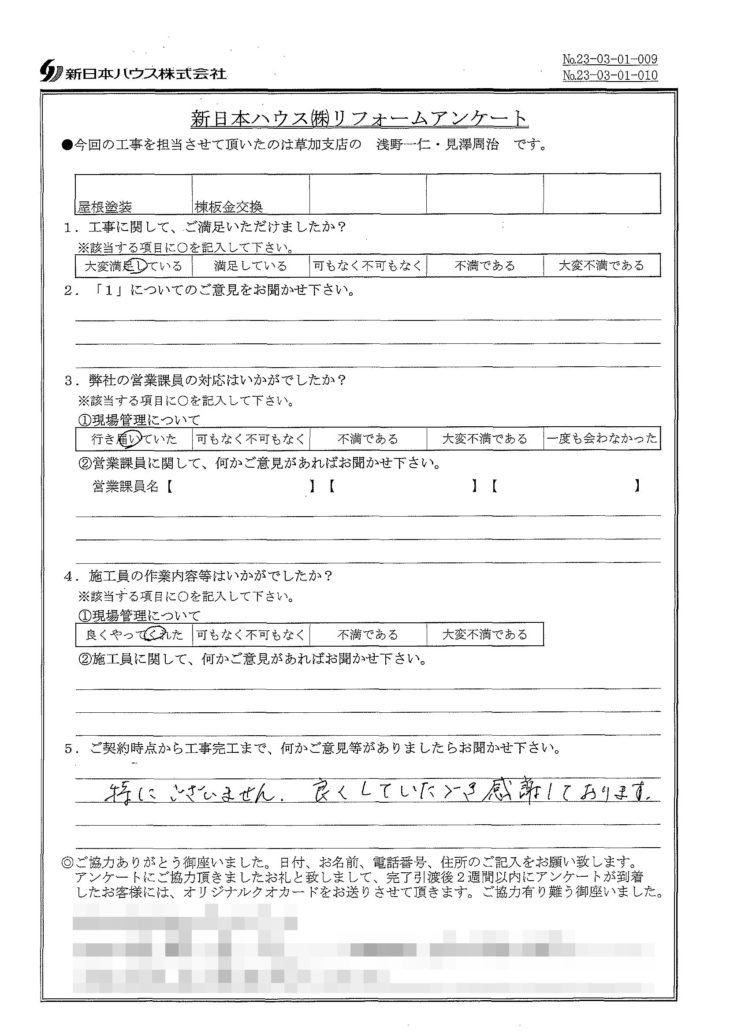 新日本ハウス株式会社
№23-03-01-009
№23-03-01-010
新日本ハウス㈱リフォームアンケート
●今回の工事を担当させて頂いたのは草加支店の 浅野一仁・見澤周治 です。
屋根塗装 棟板金交換
1．工事に関して、ご満足いただけましたか？
※該当する項目に○を記入して下さい。
大変満足している 満足している 可もなく不可もなく 不満である 大変不満である
2．「1」についてのご意見をお聞かせ下さい。
3．弊社の営業課員の対応はいかがでしたか？
※該当する項目に○を記入して下さい。
①現場管理について
行き届いていた 可もなく不可もなく 不満である 大変不満である 一度も会わなかった
②営業課員に関して、何かご意見があればお聞かせ下さい。
営業課員名【 】【 】【 】
4．施工員の作業内容等はいかがでしたか？
※該当する項目に○を記入して下さい。
①現場管理について
良くやってくれた 可もなく不可もなく 不満である 大変不満である
②施工員に関して、何かご意見があればお聞かせ下さい。
5．ご契約時点から工事完工まで、何かご意見等がありましたらお聞かせ下さい。
特にございません. 良くしていただき感謝しております.
◎ご協力ありがとう御座いました。日付、お名前、電話番号、住所のご記入をお願い致します。
アンケートにご協力頂きましたお礼と致しまして、完了引渡後2週間以内にアンケートが到着
したお客様には、オリジナルクオカードをお送りさせて頂きます。ご協力有り難う御座いました。